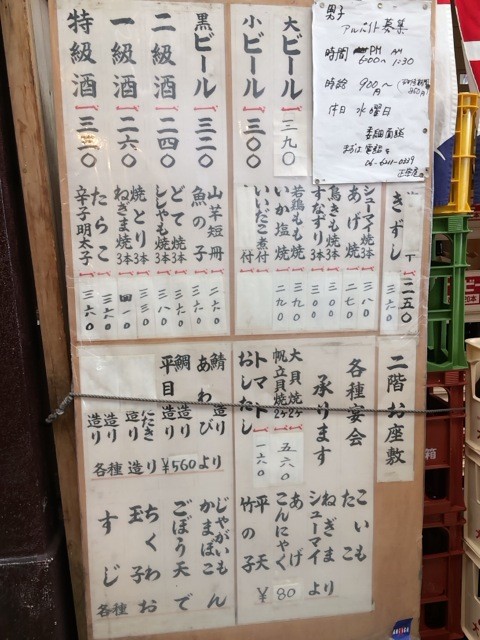 男子
アルバイト募集
時間 PM 6:00〜 AM 1:30
時給 900円〜
休日 水曜日
委細面談
または電話を
大ビール 三九〇
小ビール 三〇〇
黒ビール 三二〇
二級酒 二四〇
一級酒 二六〇
特級酒 三二〇
きずし 三五〇
シューマイ焼3本 三八〇
あげ焼 二七〇
鳥きも焼3本 三〇〇
すなずり3本 三〇〇
若鶏もも焼 三九〇
いか塩焼 二九〇
いいだこ煮付
山芋短冊 二六〇
魚の子 三六〇
どて焼3本
ししゃも焼3本 三八〇
焼とり3本 三三〇
ねぎま焼3本 四一〇
たらこ 三六〇
辛子明太子 三六〇
二階お座敷
各種宴会
承ります
大貝焼2ケ 五六〇
帆立貝焼2ケ
トマト 一六〇
おしたし
鯖造り
あわび造り
鯛造り
平目造り
各種造り ¥560より
こいも
たこ
ねぎま
シューマイ
あげ
こんにゃく
平天
竹の子
¥80より
じゃがいも
かまぼこ
ごぼう天
ちくわ
玉子
すじ
各種おでん